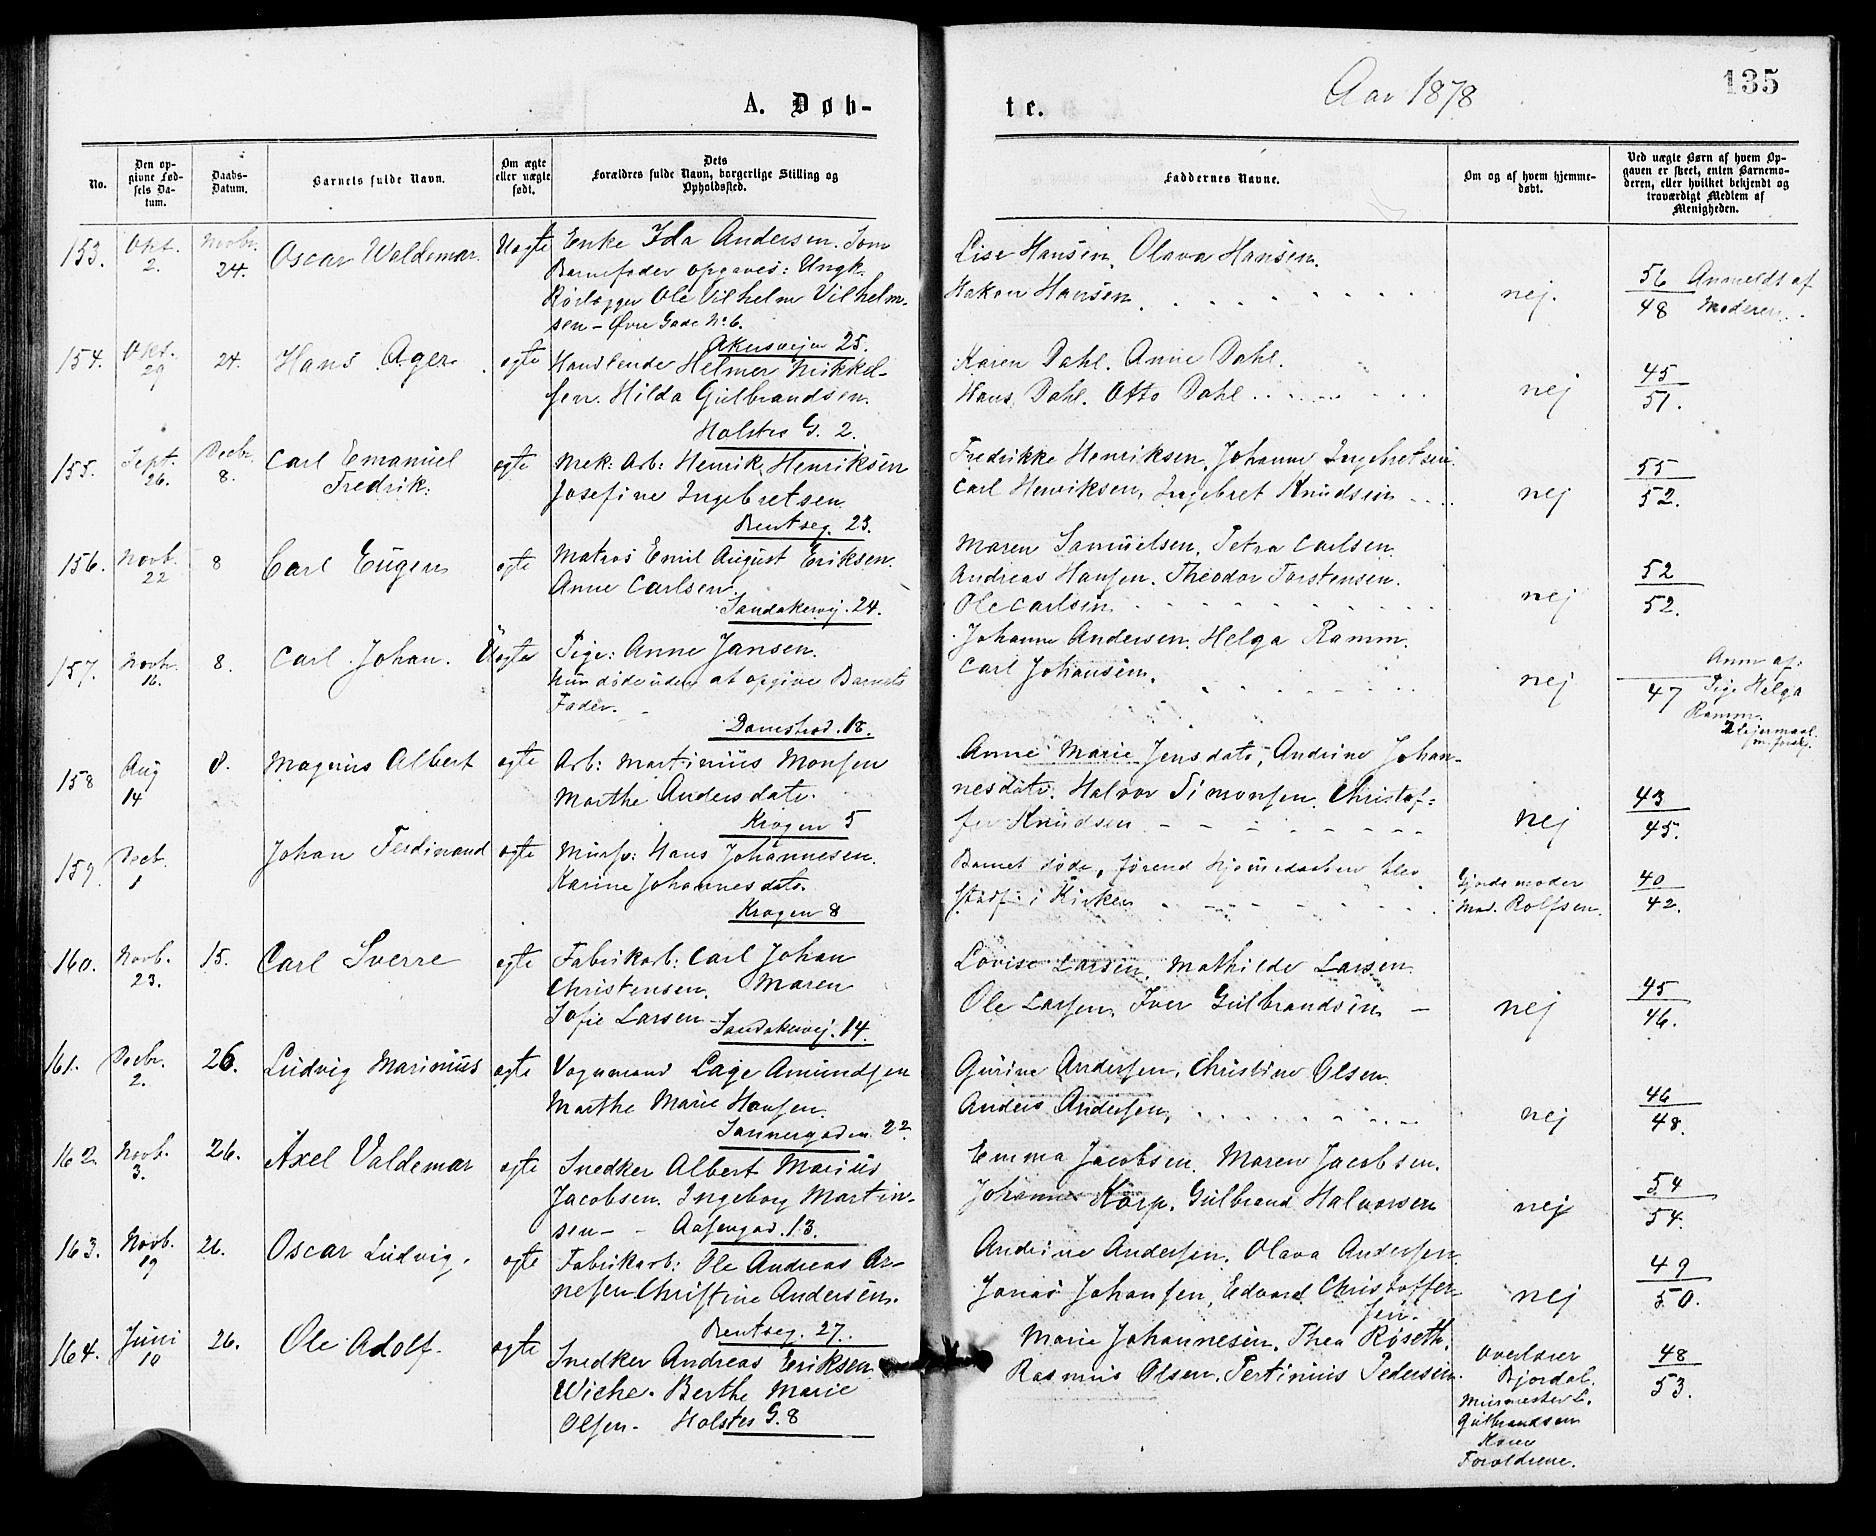 A. Døb-
te.
Aar 1878
135
No.
Den op-
givne Fød-
sels Da-
tum.
Daabs-
Datum.
Barnets fulde Navn.
Om ægte
eller uægte
født.
Dets
Forældres fulde Navn, borgerlige Stilling og
Opholdssted.
Faddernes Navne.
Om og af hvem hjemme-
døbt.
Ved uægte Børn af hvem Op-
gaven er skeet, enten Barnemo-
deren, eller hvilket bekjendt og
troværdigt Medlem af
Menigheden.
153.
Okt.
2.
Novbr.
24.
Oscar Waldemar.
Uægte
Enke Ida Andersen. Som
Barnefader opgaves: Ungk.
Rørlægger Ole Vilhelm Vilhelm-
sen - Øvre Gade No 6.
Lise Hansen, Olava Hansen.
Hakon Hansen
nej.
56
48
Anmeldt af
Moderen.
154.
Okt.
29
24.
Hans Ager.
ægte
Akersvejen 25.
Handlende Helmer Mikkel-
sen. Hilda Gulbrandsen.
Holstes G. 2.
Karen Dahl. Anne Dahl.
Hans Dahl. Otto Dahl
nej
45
51.
155.
Sept.
26.
Decbr.
8.
Carl Emanuel
Fredrik.
ægte
Mek: Arb: Henrik Henriksen
Josefine Ingebretsen
Bentseg. 23.
Fredrikke Henriksen, Johanne Ingebretsen.
Carl Henriksen, Ingebret Knudsen
nej
55
52.
156.
Novb.
22
8
Carl Eugen
ægte
Matros Emil August Eriksen.
Anne Carlsen.
Sandakervej. 24.
Maren Samuelsen, Petra Carlsen.
Andreas Hansen. Theodor Torstensen.
Ole Carlsen
nej
52
52.
157.
Novbr.
16.
8.
Carl Johan.
Uægte
Pige: Anne Jansen.
hun døde uden at opgive Barnets
Fader.
Damstræd. 18.
Johanne Andersen. Helga Ramm.
Carl Johansen.
nej
47
Anm af:
Pige Helga
Ramm.
2 Lejermaal
158
Aug
14
8.
Magnus Albert
ægte
Arb: Martinius Monsen
Marthe Andersdatr.
Krogen 5
Anne Marie Jensdatr, Andrine Johan-
nesdatr. Halvor Simonsen. Christof-
fer Knudsen
nej
43
45.
159.
Decb.
1
Johan Ferdinand
ægte
Mursv: Hans Johannesen.
Karine Johannesdatr.
Krogen 8
Barnet døde, førend Hjemmedaaben blev
stadf: i Kirken
Gjordemoder
Mad. Rolfsen.
40
42.
160.
Novb.
23.
15.
Carl Sverre
ægte
Fabrikarb: Carl Johan
Christensen. Maren
Sofie Larsen - Sandakervej. 14.
Lovise Larsen, Mathilde Larsen
Ole Larsen, Iver Gulbrandsen -
nej
45
46.
161.
Decbr.
2.
26.
Ludvig Marinius
ægte
Vognmand Lage Amundsen
Marthe Marie Hansen.
Sannergaden 22.
Gurine Andersen, Christine Olsen
Anders Andersen,
nej
46
48.
162.
Novb.
3.
26.
Axel Valdemar
ægte
Snedker Albert Marius
Jacobsen. Ingeborg Martin-
sen - - Aasengad. 13.
Emma Jacobsen. Maren Jacobsen.
Johannes Korp. Gulbrand Halvorsen
nej
54
54.
163.
Novb.
19
26.
Oscar Ludvig.
ægte
Fabrikarb: Ole Andreas Ar-
nesen Christine Andersen.
Bentseg. 27.
Andrine Andersen. Olava Andersen.
Jonas Johansen, Edvard Christoffer-
sen.
nej
49
50.
164.
Juni
10
26.
Ole Adolf.
ægte
Snedker Andreas Eriksen
Wiche. Berthe Marie
Olsen - Holstes G. 8
Marie Johannesen. Thea Røseth.
Rasmus Olsen. Pertinius Pedersen.
Overlærer
Bjordal.
Murmester L.
Gulbrandsen
Forældrene.
48
53.